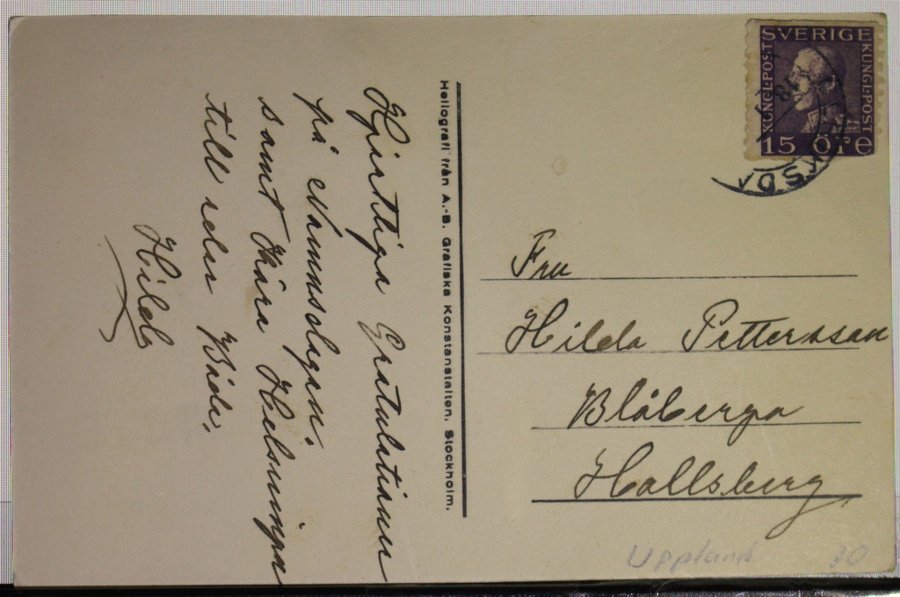 Hjertliga Gratulationer
på Namnsdagen.
samt Kära Helsninga
till eder Båda,
Hilda
Heliografi från A.-B. Grafiska Konstanstalten, Stockholm.
SVERIGE
KUNGL·POST
KUNGL·POST
15 ÖRE
Fru
Hilda Pettersson
Blåberga
Hallsberg
Uppland